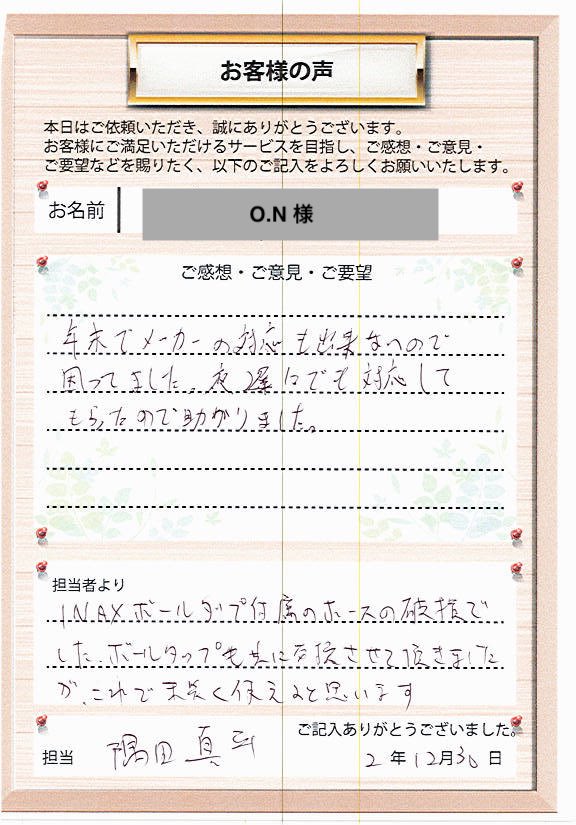 お客様の声
本日はご依頼いただき、誠にありがとうございます。
お客様にご満足いただけるサービスを目指し、ご感想・ご意見・
ご要望などを賜りたく、以下のご記入をよろしくお願いいたします。
お名前 O.N 様
ご感想・ご意見・ご要望
年末でメーカーの対応も出来ないので
困ってました。夜遅くでも対応して
もらったので助かりました。
担当者より
INAXボールタップ付属のホースの破損で
した。ボールタップも共に交換させて頂きました
が、これで末長く使えると思います
ご記入ありがとうございました。
担当 隅田 真 2年12月30日